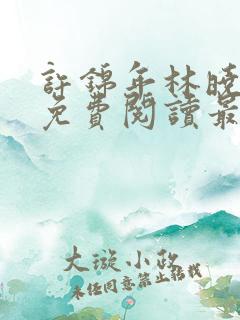 許錦年林曉
免費閱讀最
大璇小政
未经同意禁止搭载